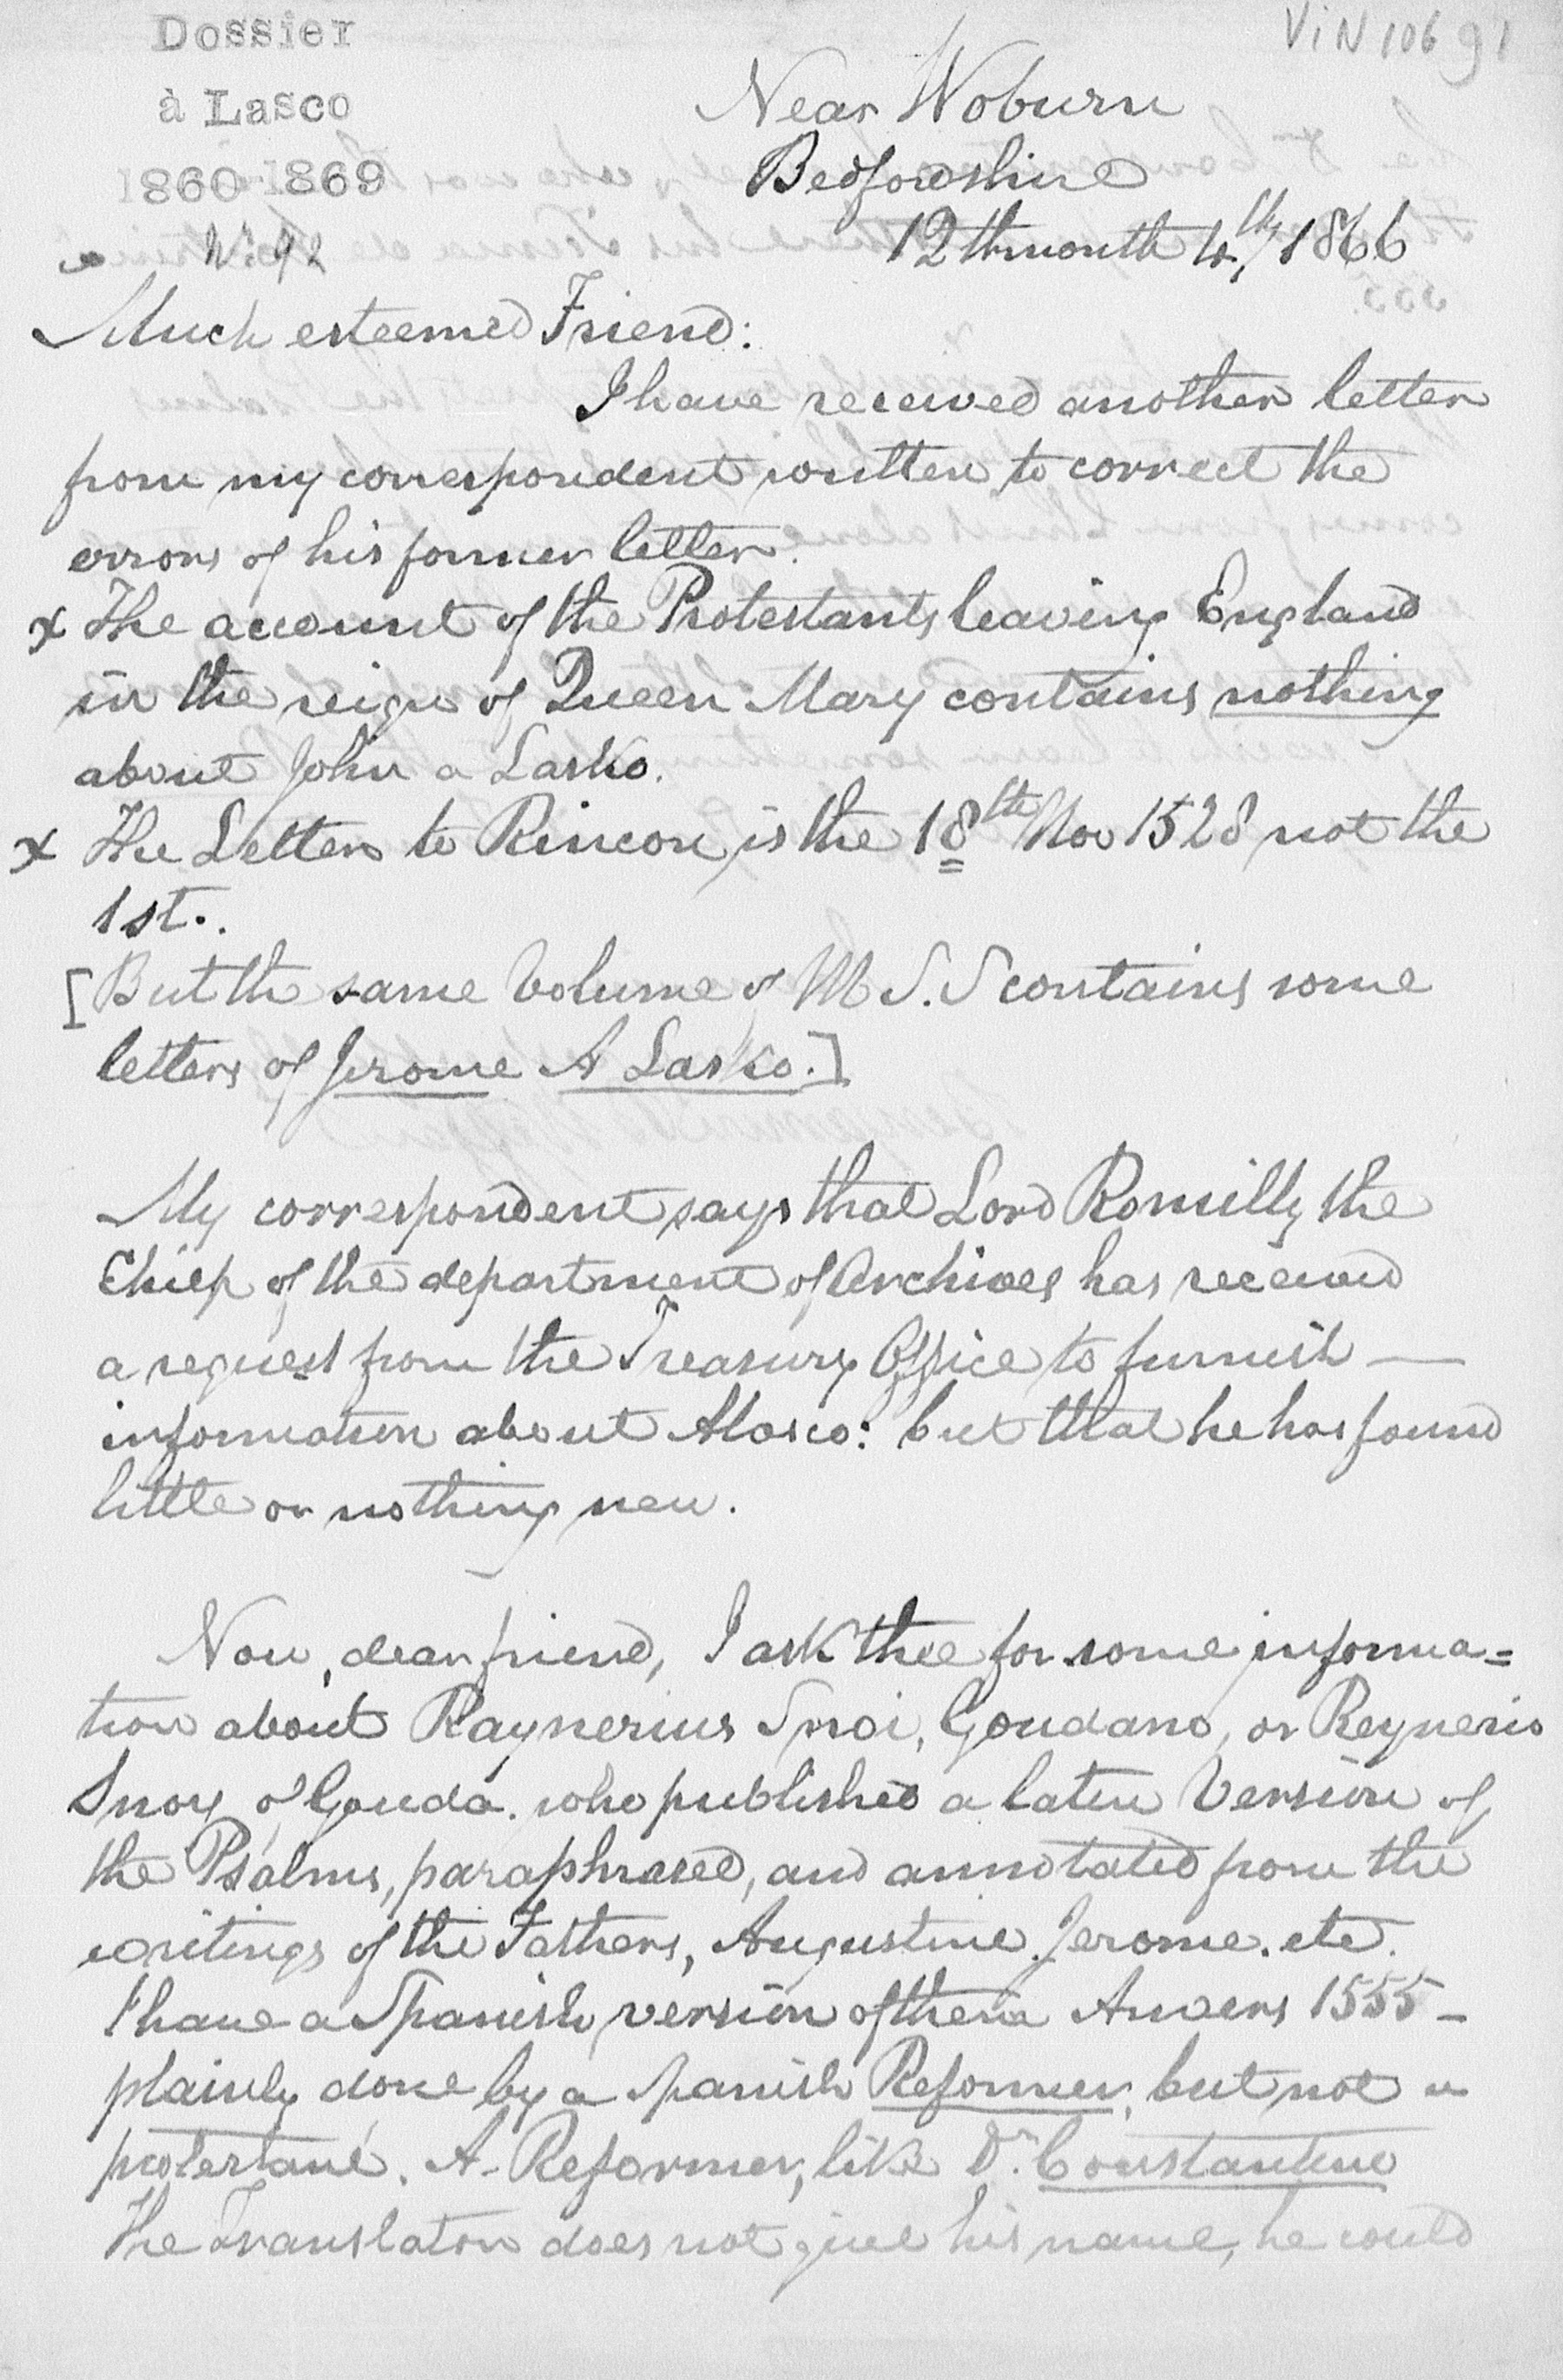 Dossier
à Lasco
1860-1869
N: 92
ViN 106 91
Near Woburn
Bedfordshire
12thmonth 4th, 1866
Much esteemed Friend:
I have received another letter
from my correspondent written to correct the
errors of his former letter.
x The account of the Protestants leaving England
in the reign of Queen Mary contains nothing
about John a Lasko.
x The Letter to Rincon is the 18th Nov 1528 not the
1st.
[But the same Volume of M S.S contains some
letters of Jerome A Lasko.]
My correspondent says that Lord Romilly the
Chief of the department of Archives has received
a request from the Treasury Office to furnish —
information about Alasco: but that he has found
little or nothing new.
Now, dear friend, I ask thee for some informa=
tion about Raynerius Snoi, Goudano, or Reynerio
Snoy of Gouda. who published a latin Version of
the Psalms, paraphrased, and annotated from the
writings of the Fathers, Augustine. Jerome. etc.
I have a Spanish version of them Anvers 1555 –
plainly done by a Spanish Reformer, but not a
protestant. A Reformer, like Dr. Constantino
The Translator does not give his name, he could